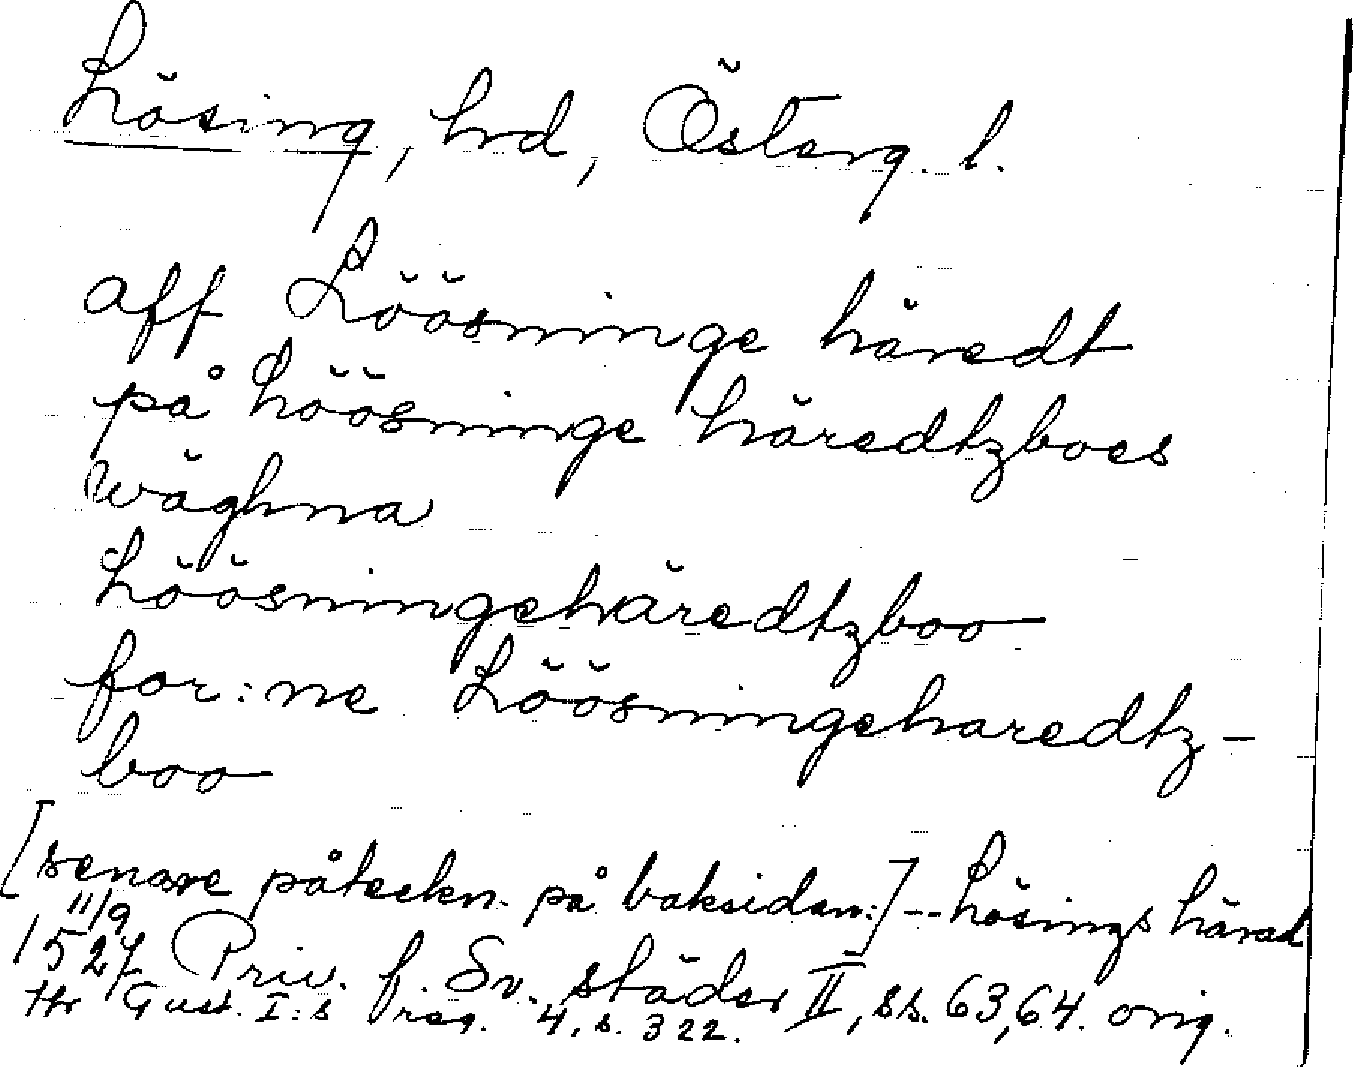 Lösing, hrd, Österg. l.
aff Löösninge häredt
på Löösninge häredtzboes
wäghna
Löösningehäredtzboo
for:ne Löösningeharedtz-
boo
[senare påteckn. på baksidan:] -- Lösings härad
11/9
1527 Priv. f. Sv. städer II, ss. 63, 64. orig.
tr Gust. I:s reg. 4, s. 322.